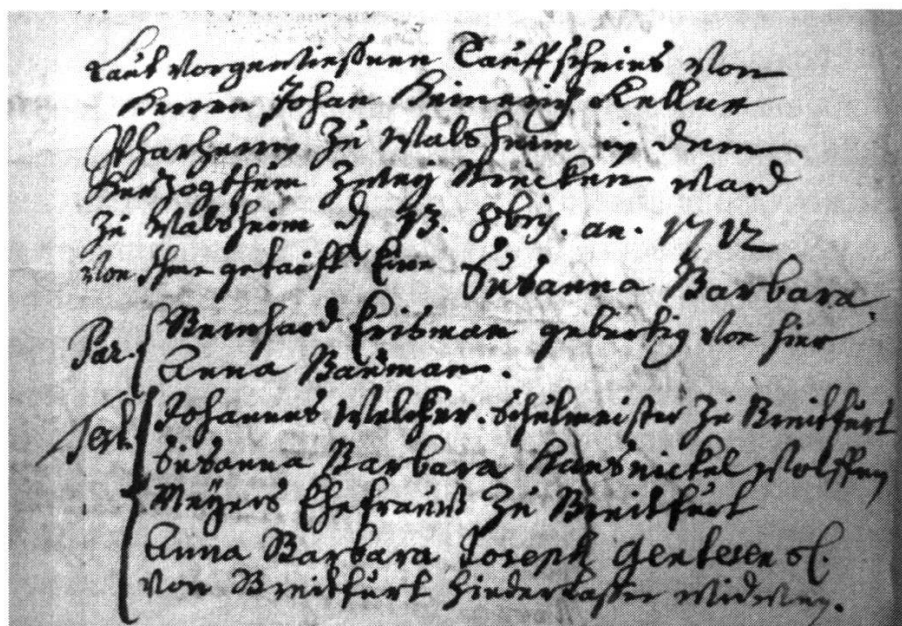 Laut vorgewießnen Tauffscheins von
Herren Johan Heinerich Keller
Pfarherrn zu Walsheim in dem
Herzogthum Zweÿ Brücken ward
zu Walsheim d 23. 8brij. an. 1712
von Ihme getaufft Eine Susanna Barbara.
Par. Bernhard Erisman gebürtig von hier
Anna Bauman.
Test. Johannes Welcker. Schulmeister zu Breitfurt
Susanna Barbara Hansnickel Wolffen
Meÿers Ehefrauw zu Breitfurt
Anna Barbara Joseph sel.
von Breitfurt hinderlassne widwen.